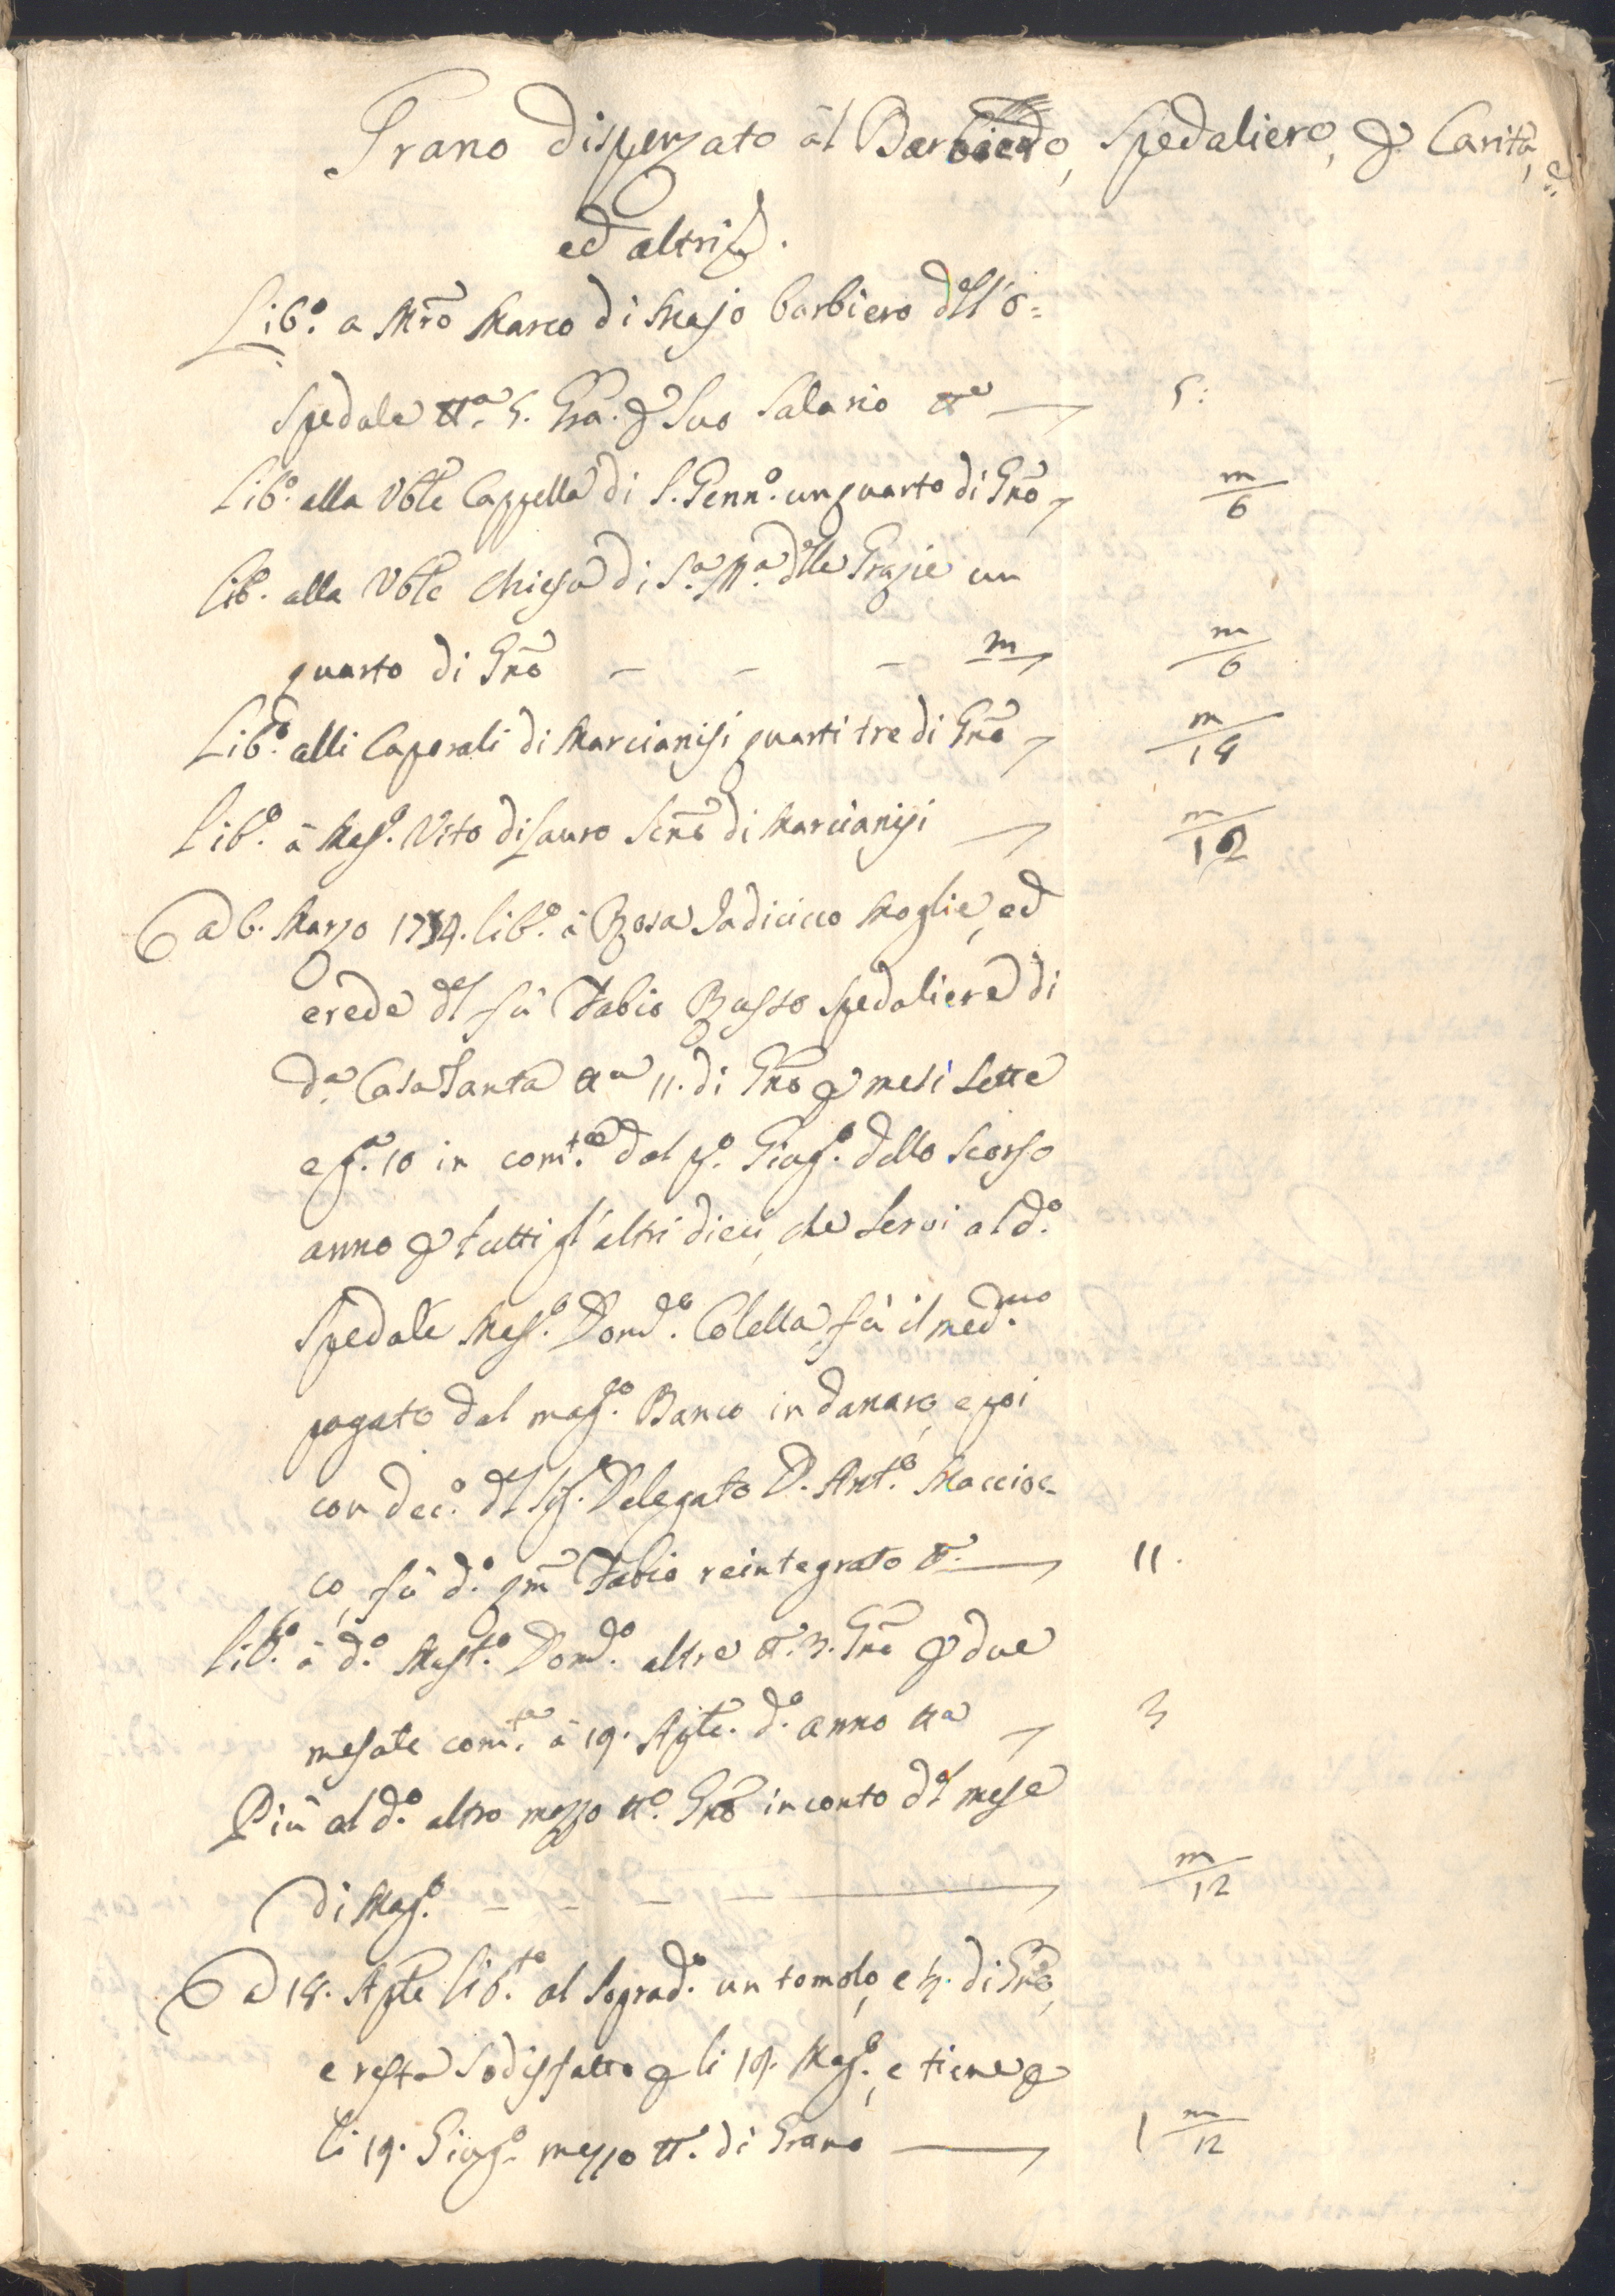 Grano dispenzato al Barbiero, Spedaliero, per Carità, e
ed altri.
Lib.o a Mro Marco di Majo barbiero dell'o=
spedale tt.a 5. Gra. per suo salario tt.a 5:
Lib.o alla Vble Cappella di S. Genn.o un quarto di Gno m/6
Lib.o alla Vble Chiesa di S.a M.a dlle Grazie un
quarto di Gno - - - m m/6
Lib.o alli Caporali di Marcianisi quarti tre di Gno m/18
Lib.o à Mag.o Vito di Lauro Scno di Marcianisi m/12
A 6. Marzo 1734. lib.o à Rosa Iadicicco moglie, ed
erede dl fù Fabio Russo spedaliere di
d.a Casa Santa tt.a 11. di Gno per mesi sette
e g.i 10 in com.to dal p.o Giug.o dello scorso
anno per tutti gl'altri dieci, che servì al d.o
Spedale Mas.o Dom.o Colella, fù il med.mo
pagato dal mag.o Banco in danaro, e poi
con dec.o dl Sig. Delegato D. Ant.o Maccioc-
co, fù d.o qm Fabio reintegrato tt. 11.
Lib.o à d.o Mast.o Dom.o altre tt. 3. Gno per due
mesate com.te à 19. Aple. d.o anno tt.a 3
Più al d.o altro mezzo tt.o Gno in conto dl mese
di Mag.o - - - m/12
A 18. Aple lib.to al soprad.o un tomolo, e 1/2. di Gno,
e resta sodisfatto per li 19. Mag.o, e tiene per
li 19. Giug.o mezzo tt. di Grano 1 m/12